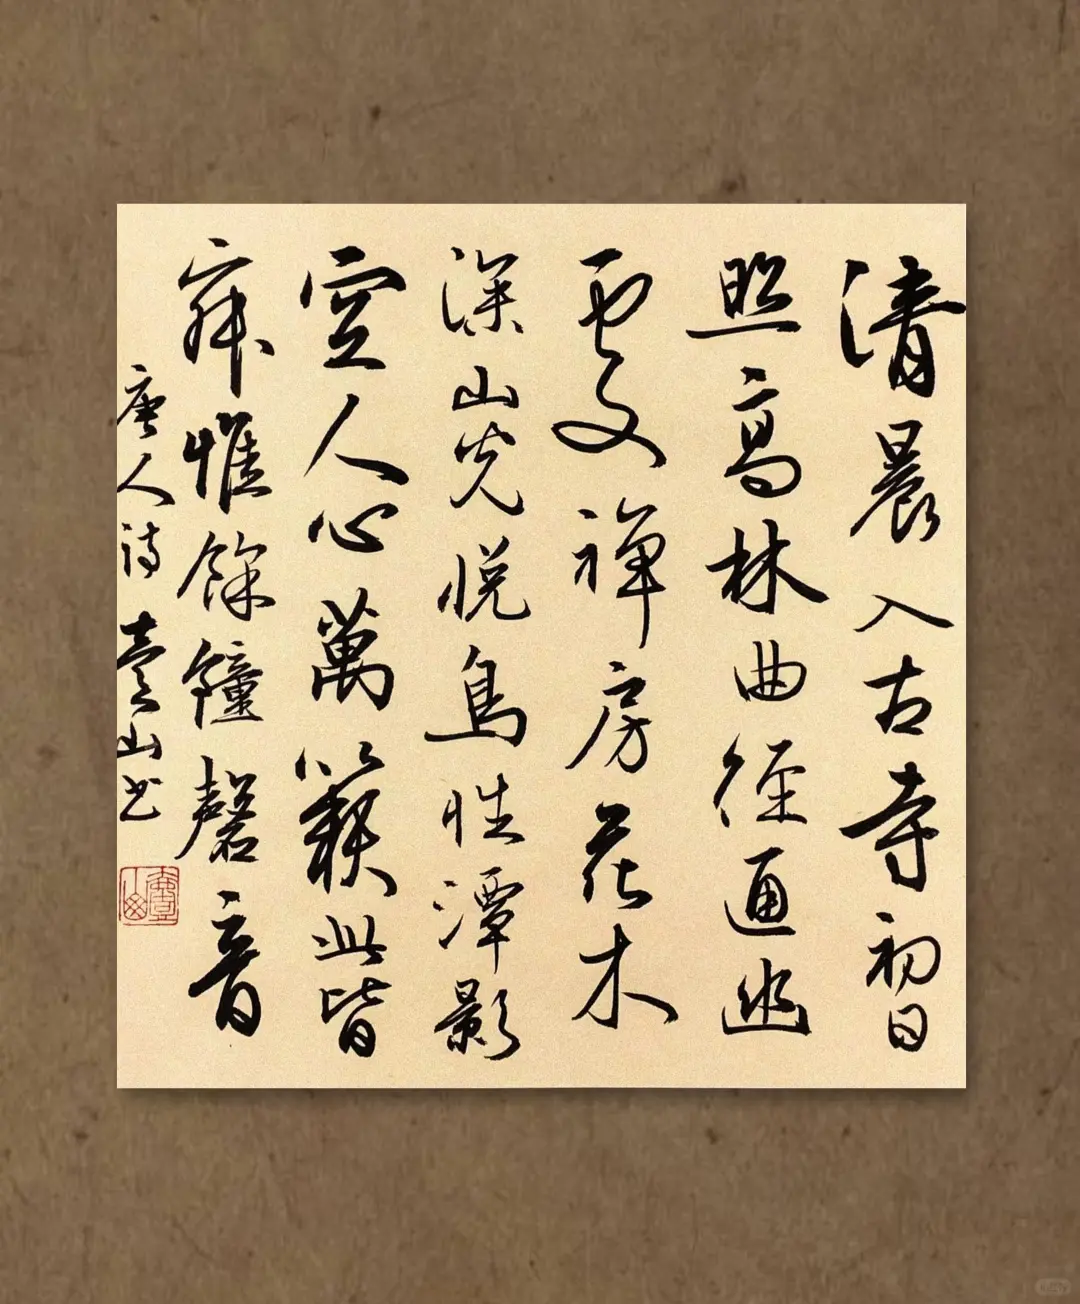 清晨入古寺初日
照高林曲徑通幽
處禅房花木
深山光悦鳥性潭影
空人心萬籟此皆
寂惟餘鐘磬音
唐人诗 山书